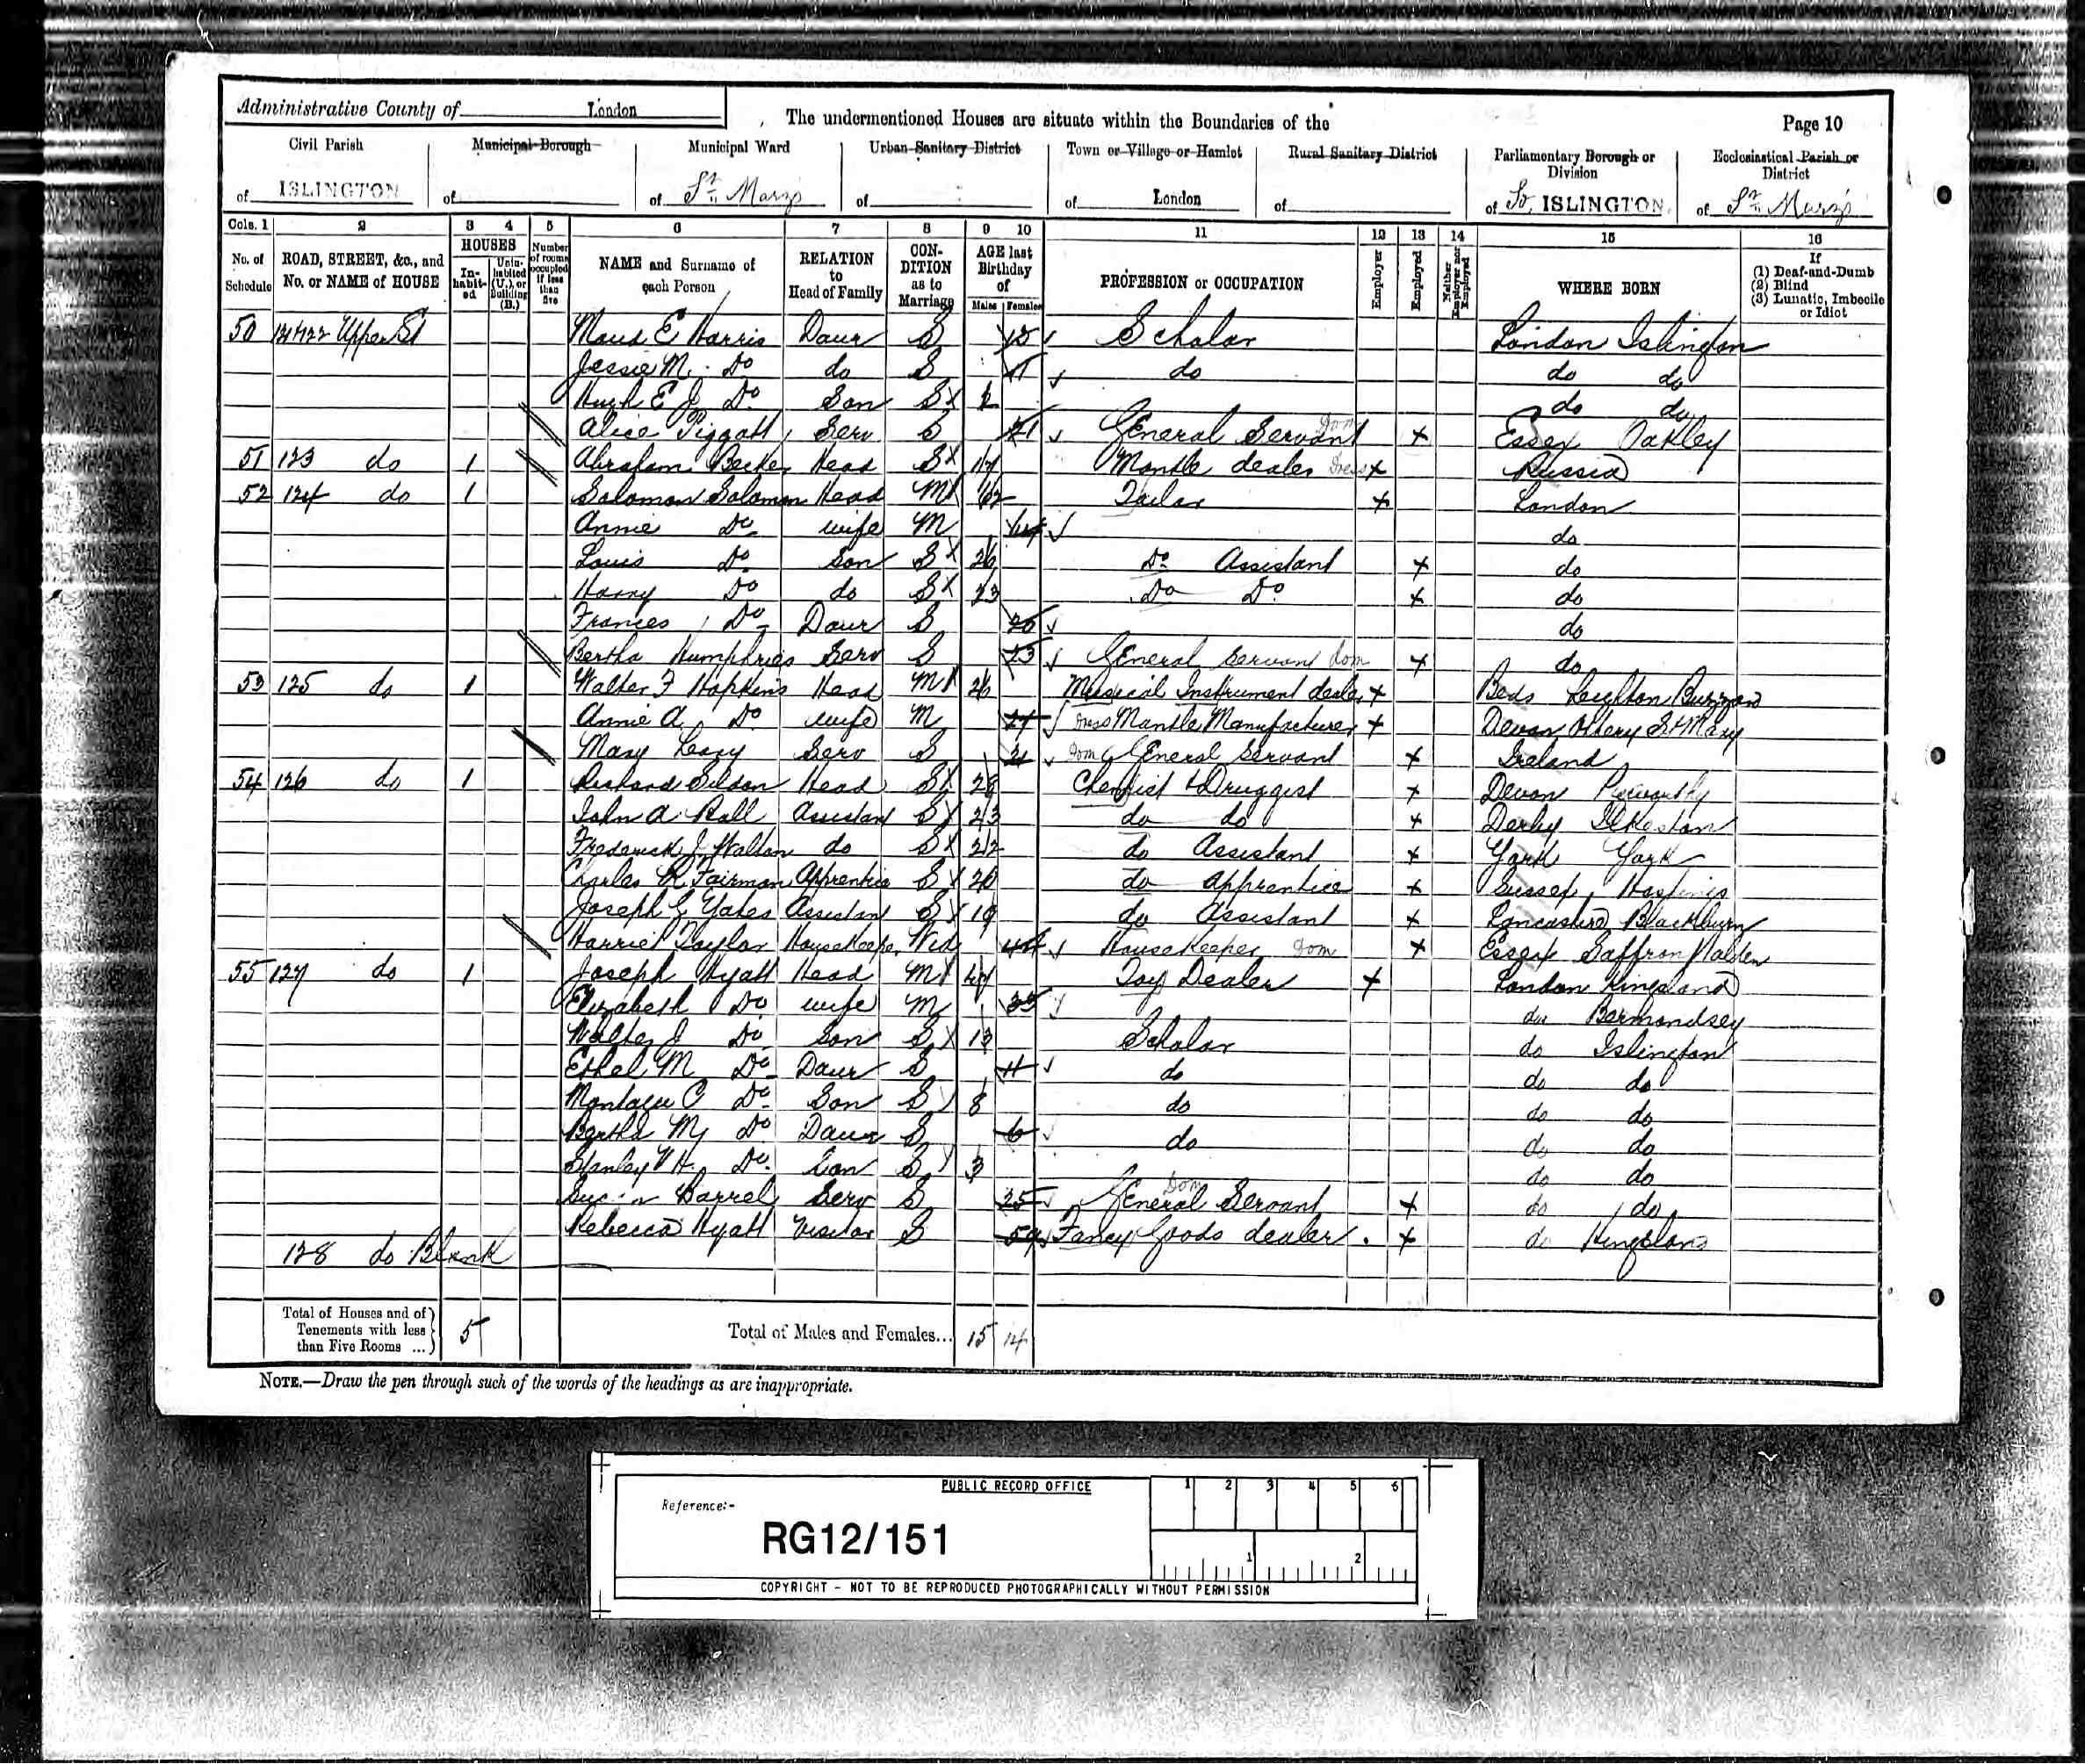 Administrative County of London
The undermentioned Houses are situate within the Boundaries of the
Page 10
Civil Parish of ISLINGTON
Municipal Borough of
Municipal Ward of St Marys
Urban Sanitary District of
Town or Village or Hamlet of London
Rural Sanitary District of
Parliamentary Borough or Division of So. ISLINGTON
Ecclesiastical Parish or District of St Marys
Cols. 1 2 3 4 5 6 7 8 9 10 11 12 13 14 15 16
No. of Schedule
ROAD, STREET, &c., and No. or NAME of HOUSE
HOUSES
Inhabited
Uninhabited (U.), or Building (B.)
Number of rooms occupied if less than five
NAME and Surname of each Person
RELATION to Head of Family
CONDITION as to Marriage
AGE last Birthday of
Males Females
PROFESSION or OCCUPATION
Employer
Employed
Neither Employer nor Employed
WHERE BORN
If
(1) Deaf-and-Dumb
(2) Blind
(3) Lunatic, Imbecile or Idiot
50 Upper St Maud E Harris Daur S Scholar London Islington
Jessie M. Do do S 11 do do do
Hugh E J Do Son S X 2 do do
Alice Piggott Serv S 21 General Servant Dom X Essex Oakley
51 123 do 1 Abraham Becker Head S X Mantle dealer Dress X Russia
52 124 do 1 Solomon Solomon Head M X 62 Tailor X London
Annie Do wife M do
Louis Do son S X 26 Do Assistant X do
Harry Do do S X 23 Do Do X do
Frances Do Daur S 20 do
Bertha Humphries Serv S 23 General Servant Dom X do
53 125 do 1 Walter F Hopkins Head M X 26 Musical Instrument dealer X Beds Leighton Buzzard
Annie A. Do wife M 27 Dress Mantle Manufacturer X Devon Ottery St Mary
Mary Leary Serv S 21 Dom General Servant X Ireland
54 126 do 1 Richard Head S X 28 Chemist & Druggist X Devon
John A Ball Assistant S X 23 do do X Derby Ilkeston
Frederick J Walton do S X 22 do Assistant X York York
Charles R Fairman Apprentice S X 20 do Apprentice X Sussex Hastings
Joseph E Yates Assistant S X 19 do Assistant X Lancashire Blackburn
Harriet Taylor Housekeeper Wid 44 Housekeeper Dom X Essex Saffron Walden
55 127 do 1 Joseph Hyatt Head M X 47 Toy Dealer X London Kingsland
Elizabeth Do wife M 35 do Bermondsey
Walter J Do Son S X 13 Scholar do Islington
Ethel M Do Daur S 11 do do do
Montague C Do Son S 8 do do do
Bertha M Do Daur S 6 do do do
Stanley V H. Do Son S 3 do do
Harrel Serv S 25 General Servant Dom X do do
Rebecca Hyatt Visitor S 59 Fancy Goods dealer X do Kingsland
128 do Blank
Total of Houses and of Tenements with less than Five Rooms ... 5
Total of Males and Females... 15 14
NOTE.—Draw the pen through such of the words of the headings as are inappropriate.
PUBLIC RECORD OFFICE 1 2 3 4 5 6
Reference:-
RG12/151
1 2
COPYRIGHT - NOT TO BE REPRODUCED PHOTOGRAPHICALLY WITHOUT PERMISSION